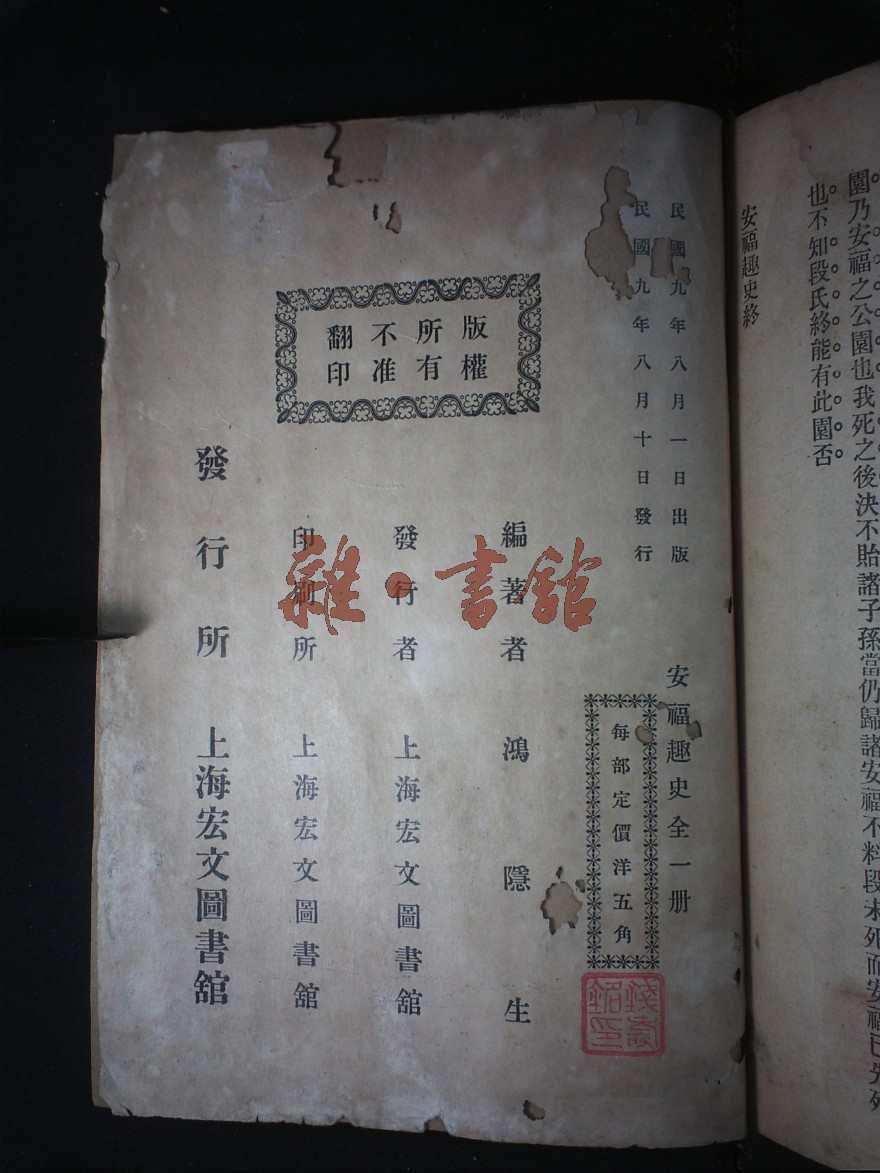 園乃安福之公園也我死之後決不貽諸子孫當仍歸諸安福不料段未死而安福已先死
也不知段氏終能有此園否
安福趣史終
民國九年八月一日出版
民國九年八月十日發行
安福趣史全一册
每部定價洋五角
版權
所有
不准
翻印
編著者 鴻隱生
發行者 上海宏文圖書舘
印刷所 上海宏文圖書舘
發行所 上海宏文圖書舘
雜·書舘